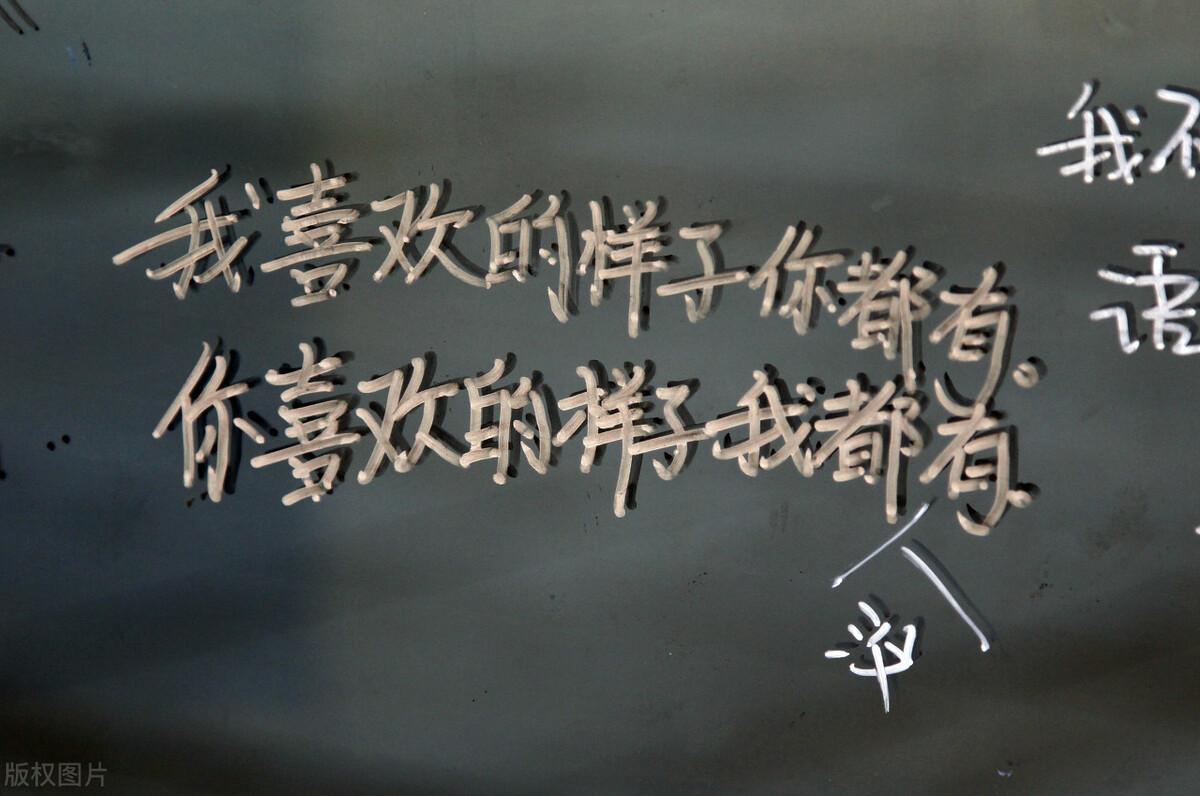 我喜欢的样子你都有。
你喜欢的样子我都有。
我不
版权图片